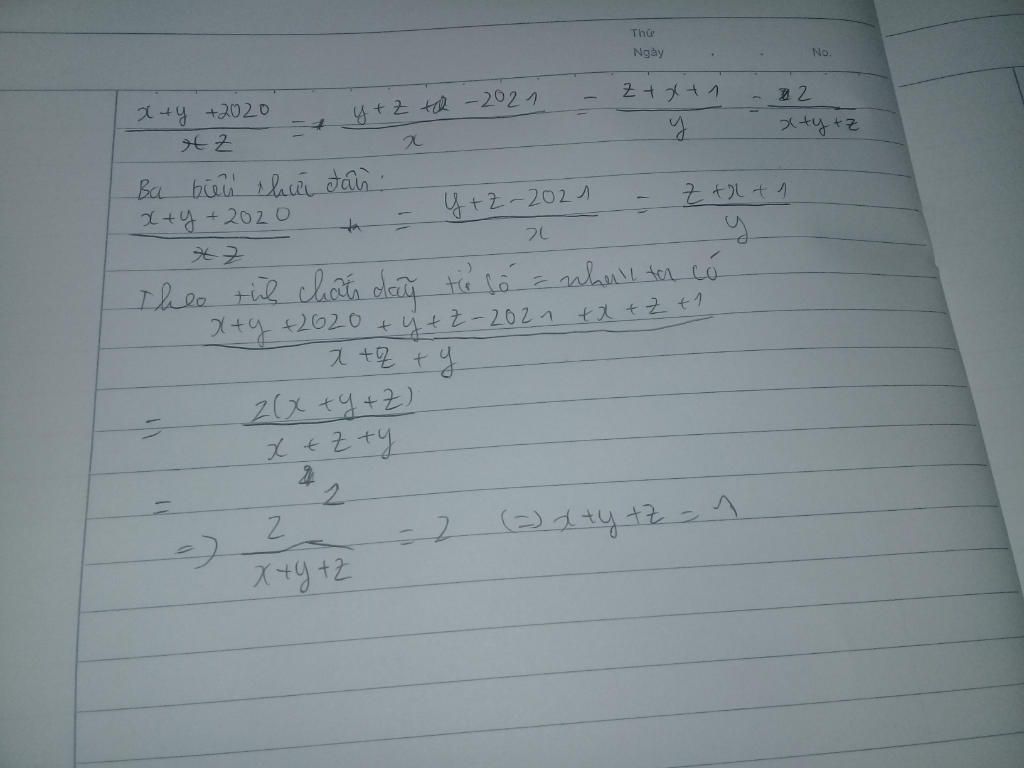 Thứ
Ngày . . No.
x+y+2020/z = y+z-2021/x = z+x+1/y = 2/x+y+z
Ba biểu thức đầu:
x+y+2020/z = y+z-2021/x = z+x+1/y
Theo t/c chất dãy tỉ số = nhau ta có
x+y+2020+y+z-2021+x+z+1/x+z+y
= 2(x+y+z)/x+z+y
= 2
=> 2/x+y+z = 2 (=) x+y+z = 1